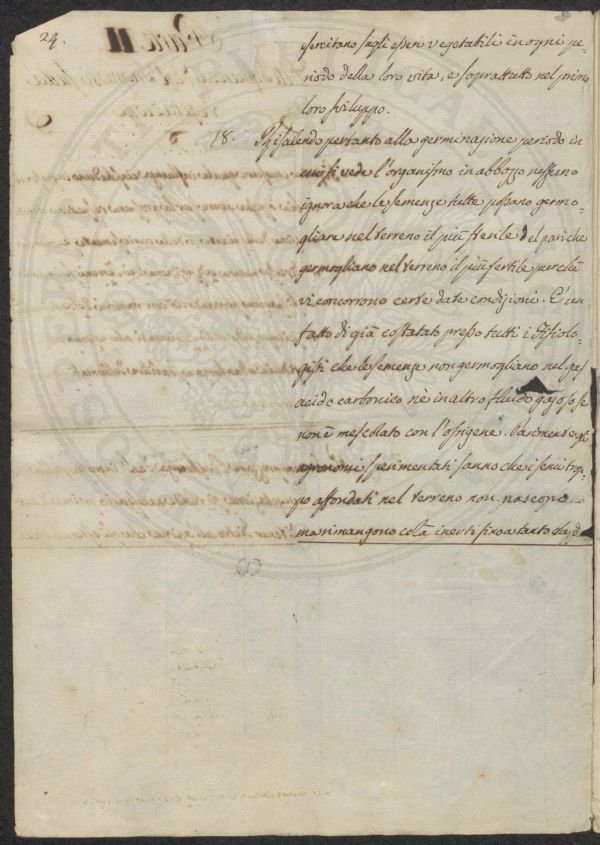 24.
sercitano sugli esseri vegetabili in ogni pe-
riodo della loro vita, e soprattutto nel primo
loro sviluppo.
18. Risalendo pertanto alla germinazione periodo in
cui si vede l'organismo in abbozzo nessuno
ignora che le semenze tutte possano germo-
gliare nel terreno il più sterile del pari che
germogliano nel terreno il più fertile perchè
vi concorrono certe date condizioni. È un
fatto di già costatato presso tutti i Fisiolo-
gisti che le semenze non germogliano nel gas
acido carbonico nè in altro fluido gasoso se
non è mescolato con l'ossigene. Parimente gli
agronomi sperimentati sanno che i semi trop-
po affondati nel terreno non nascono
ma rimangono colà inerti fino a tanto che